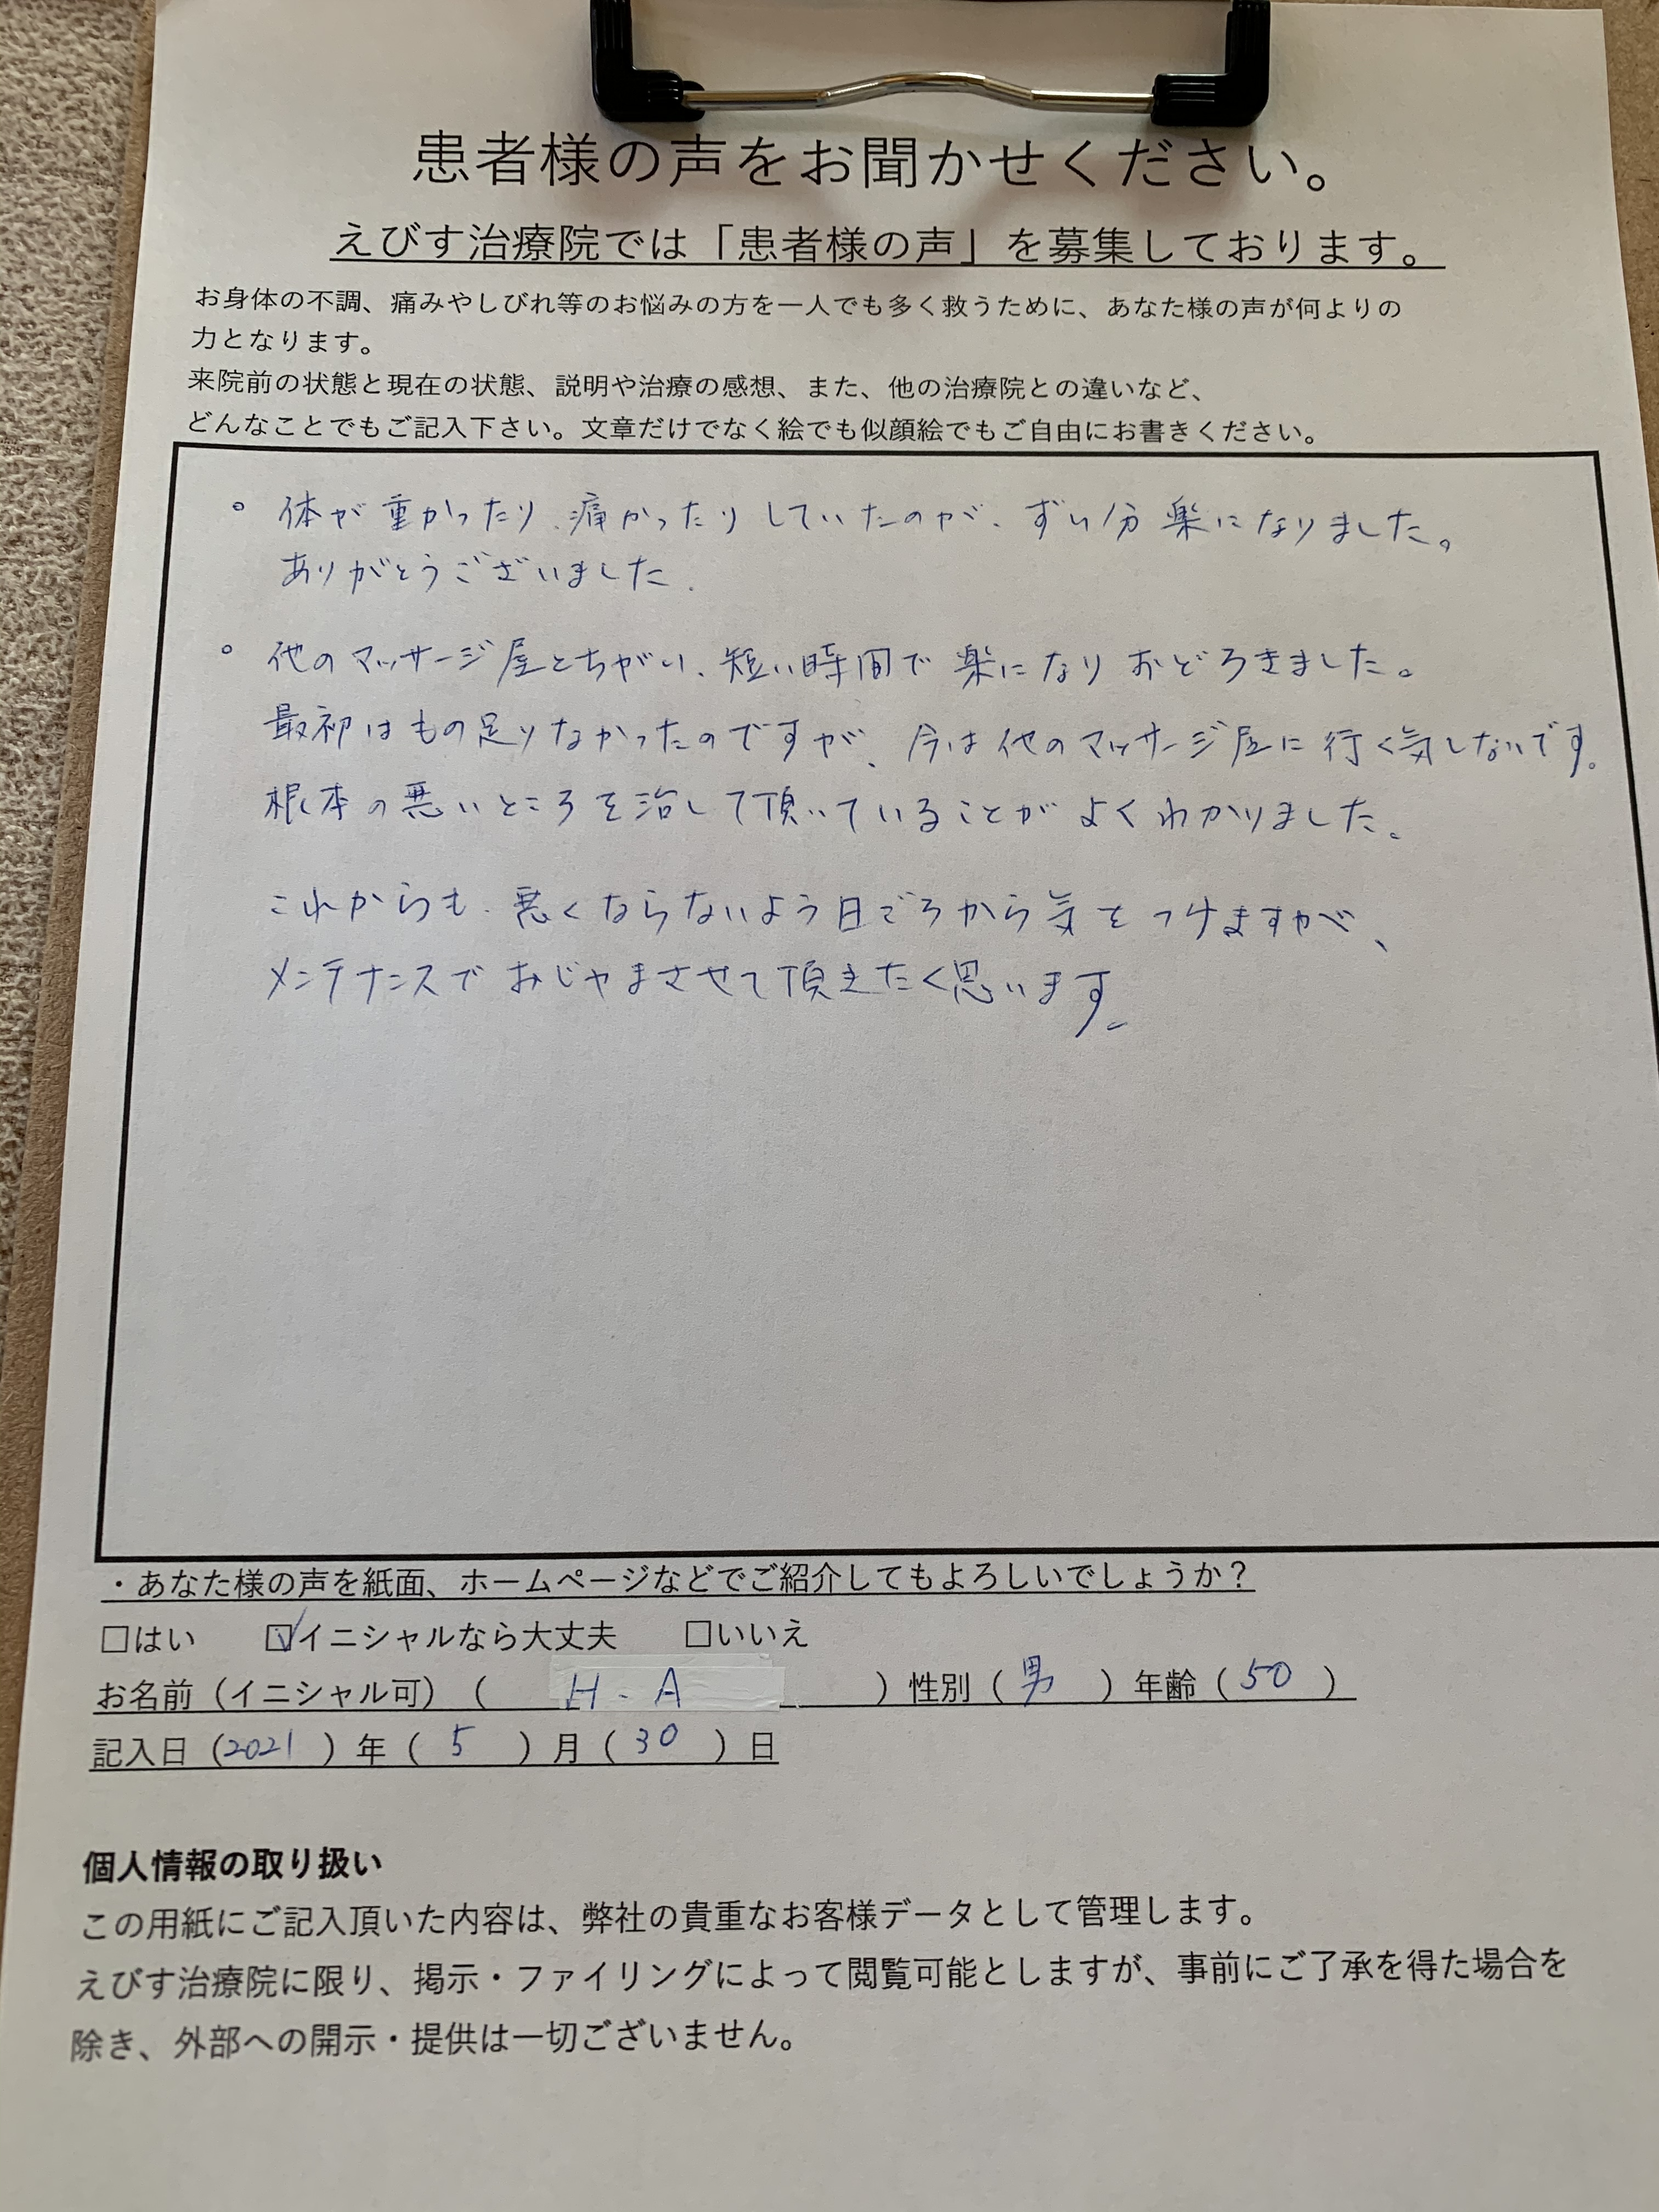 患者様の声をお聞かせください。
えびす治療院では「患者様の声」を募集しております。
お身体の不調、痛みやしびれ等のお悩みの方を一人でも多く救うために、あなた様の声が何よりの
力となります。
来院前の状態と現在の状態、説明や治療の感想、また、他の治療院との違いなど、
どんなことでもご記入下さい。文章だけでなく絵でも似顔絵でもご自由にお書きください。
。体が重かったり、痛かったりしていたのが、ずい分楽になりました。
ありがとうございました.
。他のマッサージ屋とちがい、短い時間で楽になりおどろきました。
最初はもの足りなかったのですが、今は他のマッサージ屋に行く気しないです。
根本の悪いところを治して頂いていることがよくわかりました。
これからも、悪くならないよう日ごろから気をつけますが、
メンテナンスでおじゃまさせて頂きたく思います。
・あなた様の声を紙面、ホームページなどでご紹介してもよろしいでしょうか?
□はい ☑イニシャルなら大丈夫 □いいえ
お名前（イニシャル可）（ H.A ）性別（男）年齢（50）
記入日（2021）年（5）月（30）日
個人情報の取り扱い
この用紙にご記入頂いた内容は、弊社の貴重なお客様データとして管理します。
えびす治療院に限り、掲示・ファイリングによって閲覧可能としますが、事前にご了承を得た場合を
除き、外部への開示・提供は一切ございません。